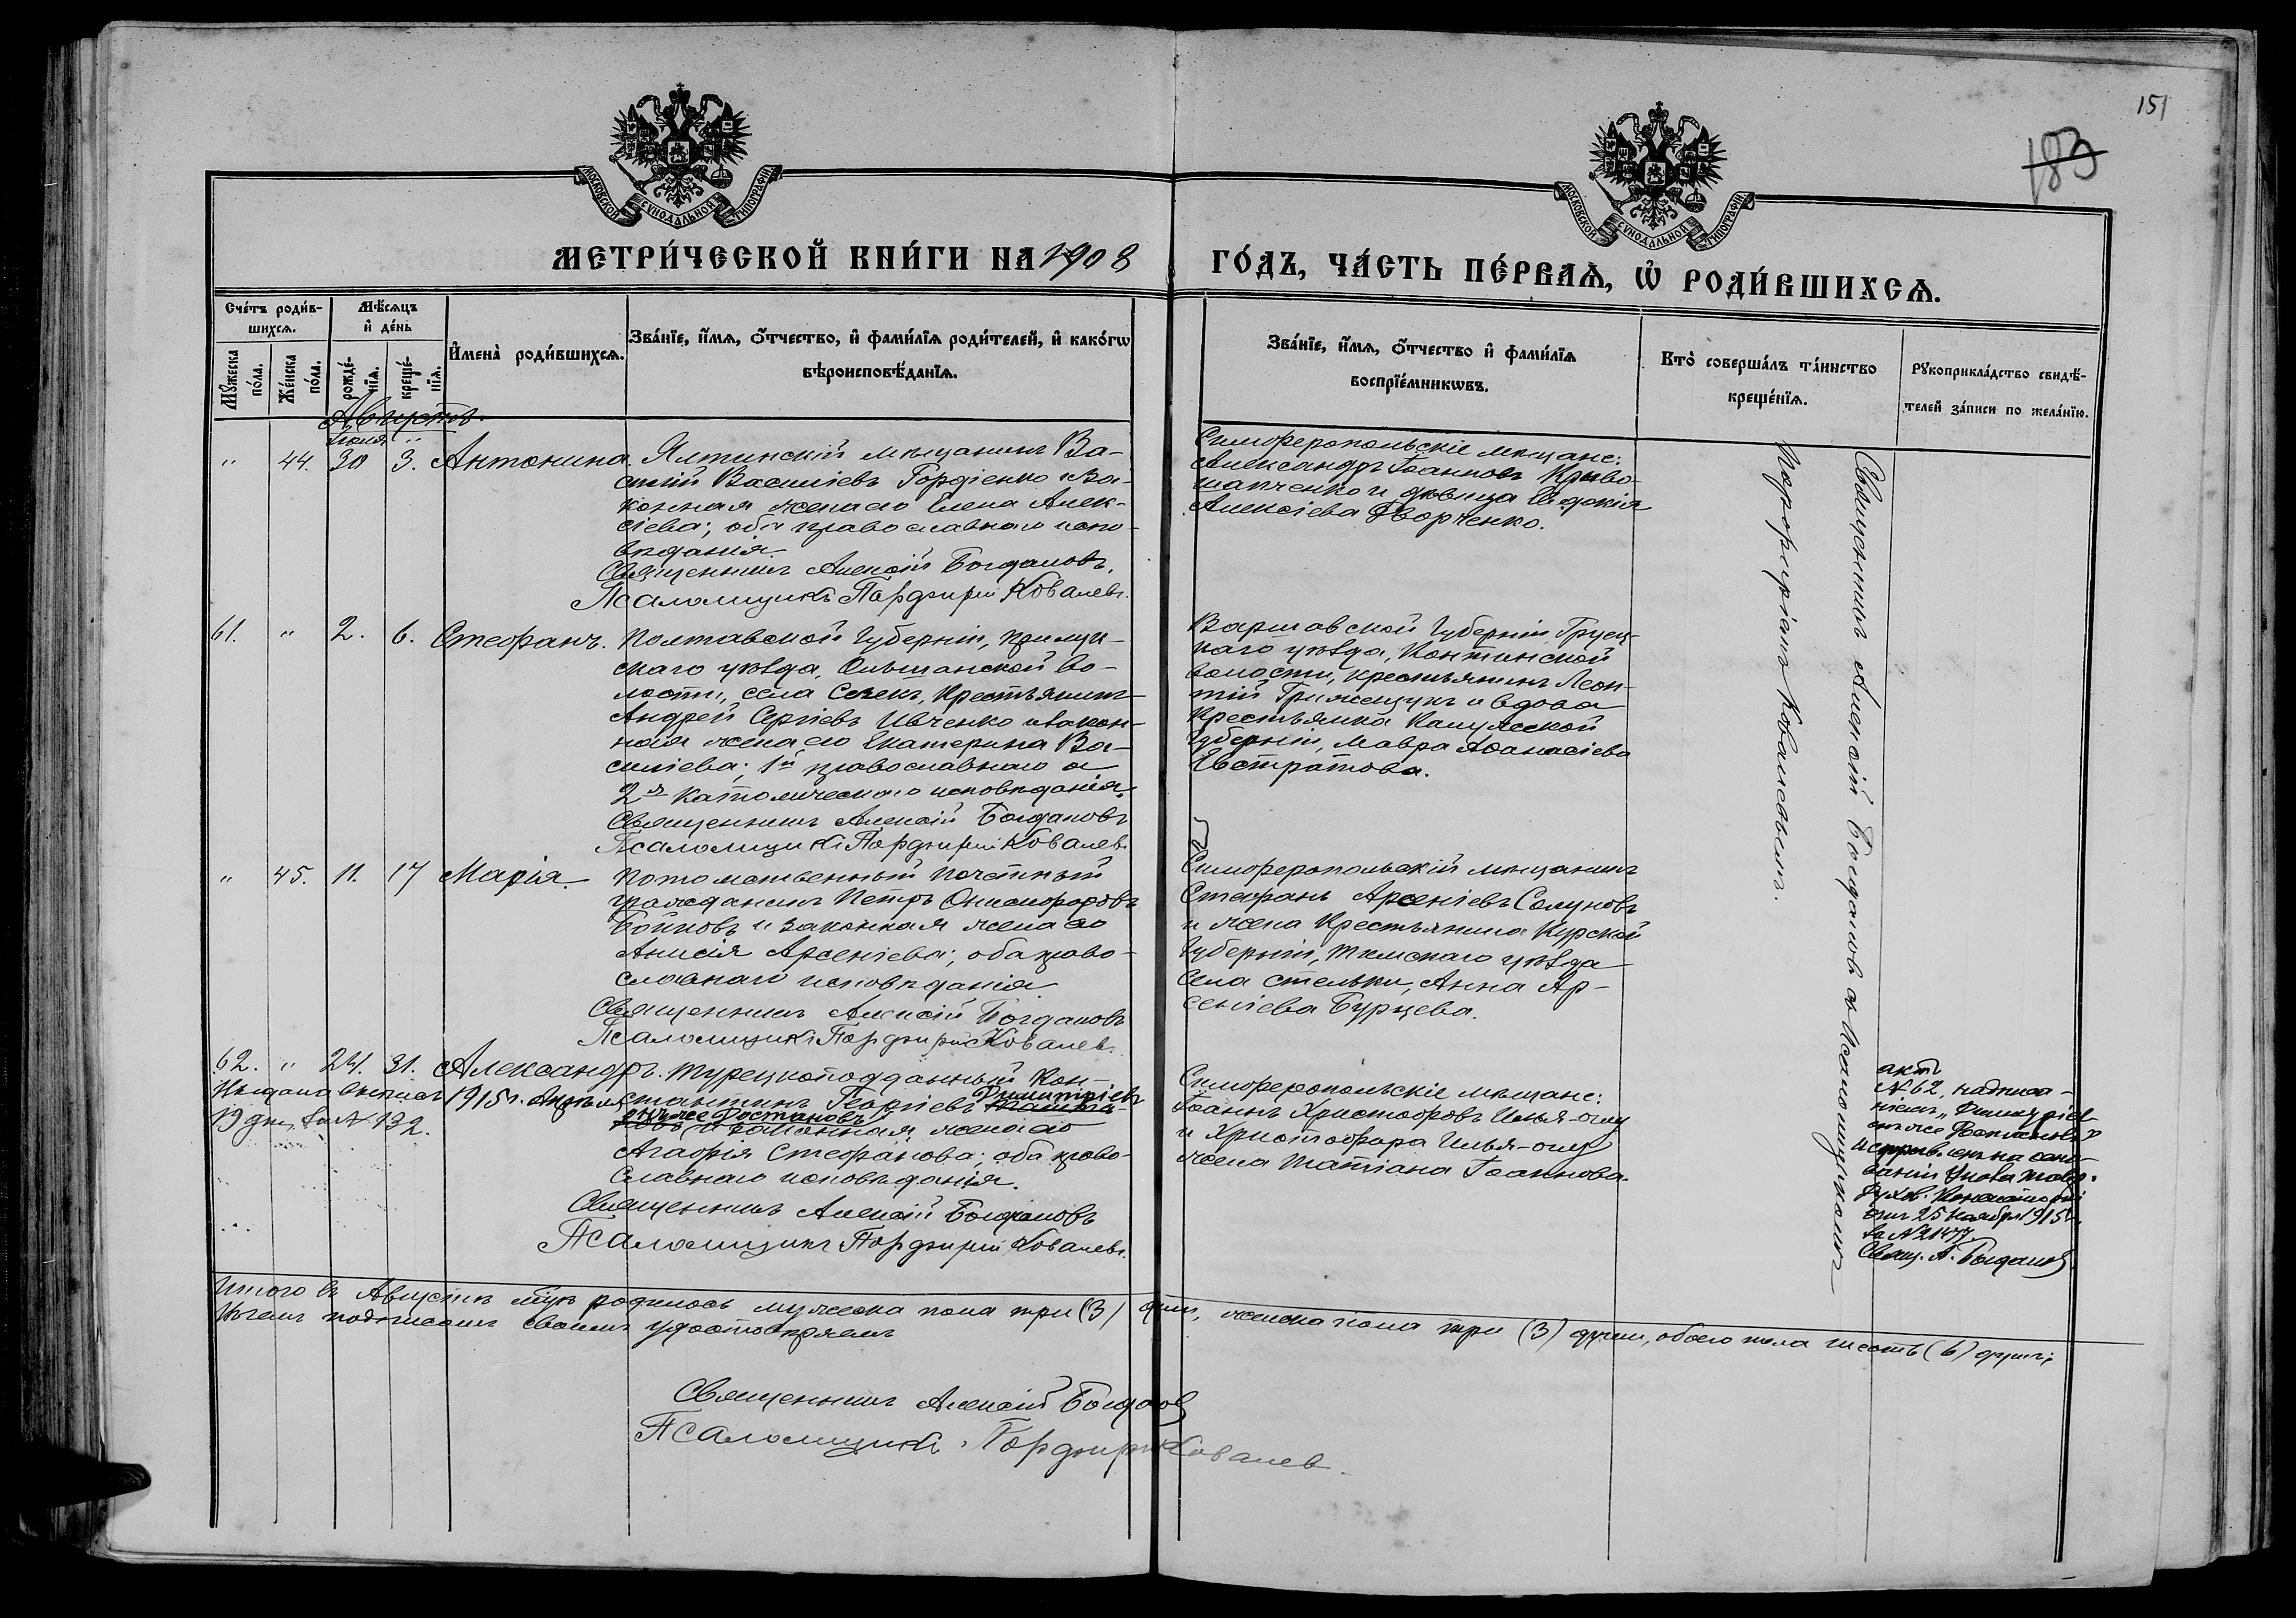 151
183
МОСКОВСКОЙ СѴНОДАЛЬНОЙ ТИПОГРАФІИ
МОСКОВСКОЙ СѴНОДАЛЬНОЙ ТИПОГРАФІИ
МЕТРИ́ЧЕСКОЙ КНИ́ГИ НА 1908
ГО́ДЪ, ЧА́СТЬ ПЕ́РВАѦ, Ѡ҆ РОДИ́ВШИХСѦ.
Сче́тъ роди́в-
шихсѧ.
Мꙋ́жеска по́ла.
Же́нска по́ла.
Мѣ́сѧцъ
и҆ де́нь
рожде́-
нїѧ.
креще́-
нїѧ.
И҆мена̀ роди́вшихсѧ.
Зва́нїе, и҆́мѧ, ѻ҆́тчество, и҆ фами́лїѧ роди́телей, и҆ како́гѡ
вѣроисповѣ́данїѧ.
Зва́нїе, и҆́мѧ, ѻ҆́тчество и҆ фами́лїѧ
воспрїе́мникѡвъ.
Кто̀ соверша́лъ та́инство
креще́нїѧ.
Рꙋкоприкла́дство свидѣ́-
телей за́писи по жела́нїю.
Августъ.
Іюля "
" 44. 30 3. Антонина. Ялтинскій мѣщанинъ Ва-
силій Василіевъ Гордіенко и за-
конная жена его Елена Алек-
сіева; оба православнаго испо-
вѣданія.
Священникъ Алексій Богдановъ.
Псаломщикъ Порфирій Ковалевъ.
Симферопольскіе мѣщане:
Александръ Іоанновъ Криво-
шапченко и дѣвица Евдокія
Алексіева Дворченко.
61. " 2. 6. Стефанъ. Полтавской губерніи, Прилук-
скаго уѣзда, Ольшанской во-
лости, села крестьянинъ
Андрей Сергіевъ Ивченко и закон-
ная жена его Екатерина Ва-
силіева; 1й православнаго а
2я католическаго исповѣданія.
Священникъ Алексій Богдановъ
Псаломщикъ Порфирій Ковалевъ.
Варшавской губерніи Груец-
каго уѣзда, Континской
волости, крестьянинъ Леон-
тій и вдова
крестьянка Калужской
губерніи, Мавра Афанасіева
Евстратова.
" 45. 11. 17 Марія. Потомственный почетный
гражданинъ Петръ Онисифоровъ
Бойковъ и законная жена его
Анисія Арсеніева; оба право-
славнаго исповѣданія
Священникъ Алексій Богдановъ
Псаломщикъ Порфирій Ковалев.
Симферопольскій мѣщанинъ
Стефанъ Арсеніевъ Солуновъ
и жена крестьянина Курской
губерніи, Тимскаго уѣзда
села Стельки, Анна Ар-
сеніева Бурцева.
62. " 24. 31. Александръ. Турецкоподданный Кон-
стантинъ Георгіевъ Димитріевъ
онъ же Фостановъ
и законная жена его
Агафія Стефанова; оба право-
славнаго исповѣданія.
Священникъ Алексій Богдановъ
Псаломщикъ Порфирій Ковалевъ.
Выдана выпись 1915 г. Апрѣля
19 дня, за № 132.
Симферопольскіе мѣщане:
Іоаннъ Христофоровъ Илья-оглу
и Христофора Илья-оглу
жена Татіана Іоаннова.
Священникъ Алексій Богдановъ съ псаломщикомъ
Порфиріемъ Ковалевымъ.
актъ
№ 62, надписа-
ніемъ „Димитріев
онъ же Фостановъ"
исправленъ на осно-
ваніи указа Тавр.
Духов. Консисторіи
отъ 25 ноября 1915 г.
за № 21477.
Свящ. А. Богдановъ
Итого въ Августѣ м-цѣ родилось мужеска пола три (3) души, женска пола три (3) души, обоего пола шесть (6) душъ;
въ чемъ подписомъ своимъ удостовѣряемъ
Священникъ Алексій Богдановъ
Псаломщикъ Порфирій Ковалев.